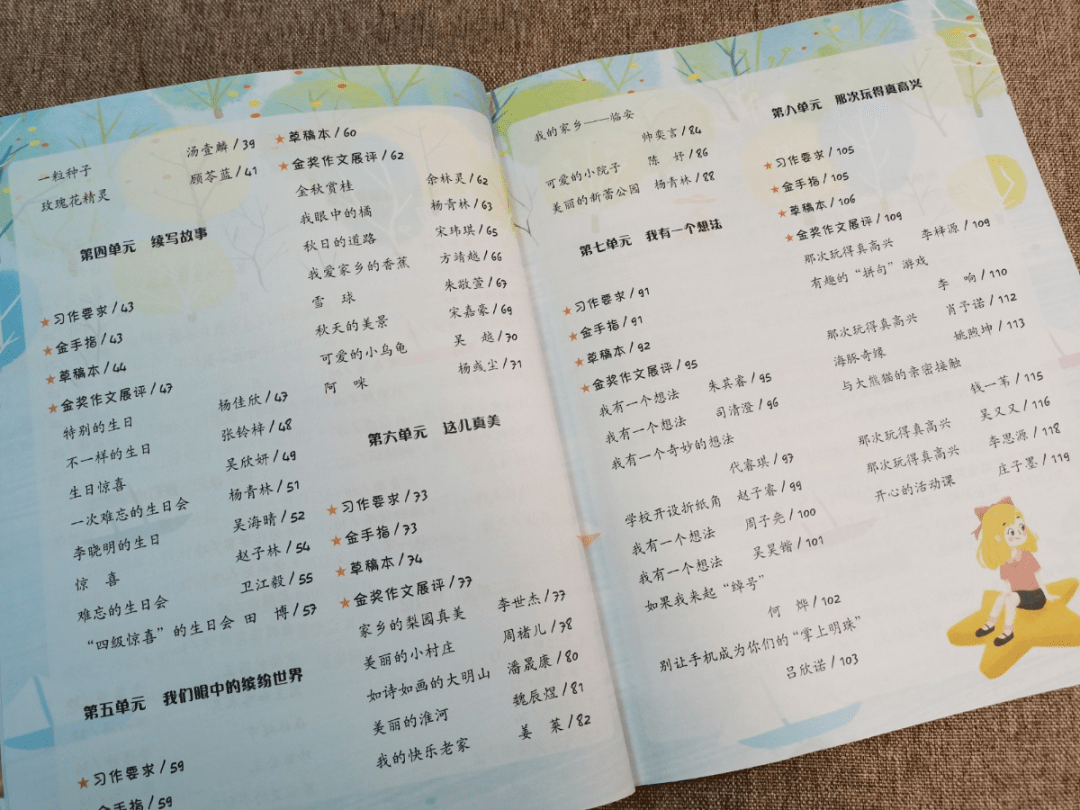 一粒种子 汤壹麟/39
玫瑰花精灵 顾苓蓝/41
第四单元 续写故事
★习作要求/43
★金手指/43
★草稿本/44
★金奖作文展评/47
特别的生日 杨佳欣/47
不一样的生日 张铃梓/48
生日惊喜 吴欣妍/49
一次难忘的生日会 杨青林/51
李晓明的生日 吴海晴/52
惊 喜 赵子林/54
难忘的生日会 卫江毅/55
“四级惊喜”的生日会 田 博/57
第五单元 我们眼中的缤纷世界
★习作要求/59
★金手指/59
★草稿本/60
★金奖作文展评/62
金秋赏桂 余林灵/62
我眼中的橘 杨青林/63
秋日的道路 宋玮琪/65
我爱家乡的香蕉 方靖越/66
雪 球 朱敬萱/67
秋天的美景 宋嘉豪/69
可爱的小乌龟 吴 越/70
阿 咪 杨彧尘/71
第六单元 这儿真美
★习作要求/73
★金手指/73
★草稿本/74
★金奖作文展评/77
家乡的梨园真美 李世杰/77
美丽的小村庄 周褚儿/78
如诗如画的大明山 潘晟康/80
美丽的淮河 魏辰煜/81
我的快乐老家 姜 莱/82
我的家乡——临安
帅奕言/84
可爱的小院子 陈 妤/86
美丽的新蕾公园 杨青林/88
第七单元 我有一个想法
★习作要求/91
★金手指/91
★草稿本/92
★金奖作文展评/95
我有一个想法 朱其睿/95
我有一个想法 司清澄/96
我有一个奇妙的想法
代睿琪/97
学校开设折纸角 赵子睿/99
我有一个想法 周子尧/100
我有一个想法 吴昊锴/101
如果我来起“绰号”
何 烨/102
别让手机成为你们的“掌上明珠”
吕欣诺/103
第八单元 那次玩得真高兴
★习作要求/105
★金手指/105
★草稿本/106
★金奖作文展评/109
那次玩得真高兴 李梓源/109
有趣的“拼句”游戏
李 响/110
那次玩得真高兴 肖子诺/112
海豚奇缘 姚煦坤/113
与大熊猫的亲密接触
钱一苇/115
那次玩得真高兴 吴又又/116
那次玩得真高兴 李思源/118
开心的活动课 庄子墨/119